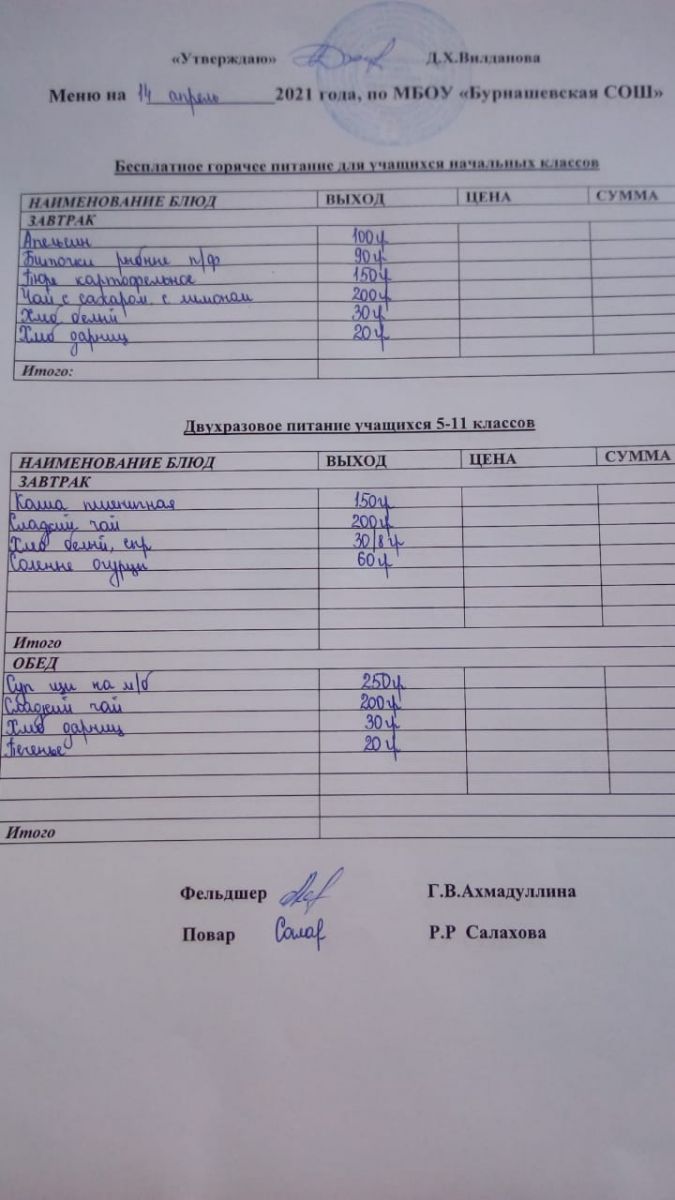 «Утверждаю» Д.Х.Вилданова
Меню на 14 апрель 2021 года, по МБОУ «Бурнашевская СОШ»
Бесплатное горячее питание для учащихся начальных классов
НАИМЕНОВАНИЕ БЛЮД ВЫХОД ЦЕНА СУММА
ЗАВТРАК
Апельсин 100 гр
Биточки рыбные п/ф 90 гр
Пюре картофельное 150 гр
Чай с сахаром, с лимоном 200 гр
Хлеб белый 30 гр
Хлеб дарниц 20 гр
Итого:
Двухразовое питание учащихся 5-11 классов
НАИМЕНОВАНИЕ БЛЮД ВЫХОД ЦЕНА СУММА
ЗАВТРАК
Каша пшеничная 150 гр
Сладкий чай 200 гр
Хлеб белый, сыр 30/8 гр
Соленые огурцы 60 гр
Итого
ОБЕД
Суп щи на м/б 250 гр
Сладкий чай 200 гр
Хлеб дарниц 30 гр
Печенье 20 гр
Итого
Фельдшер Г.В.Ахмадуллина
Повар Салах Р.Р Салахова